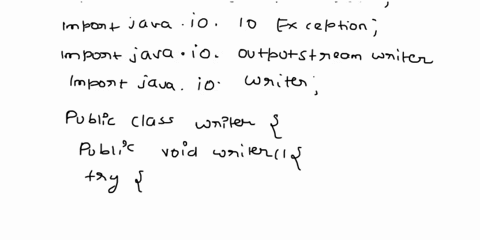 Import java.io. IO Exception;
Import java.io. outputstream writer
Import java.io. writer;
Public class writer {
Public void writer() {
try {